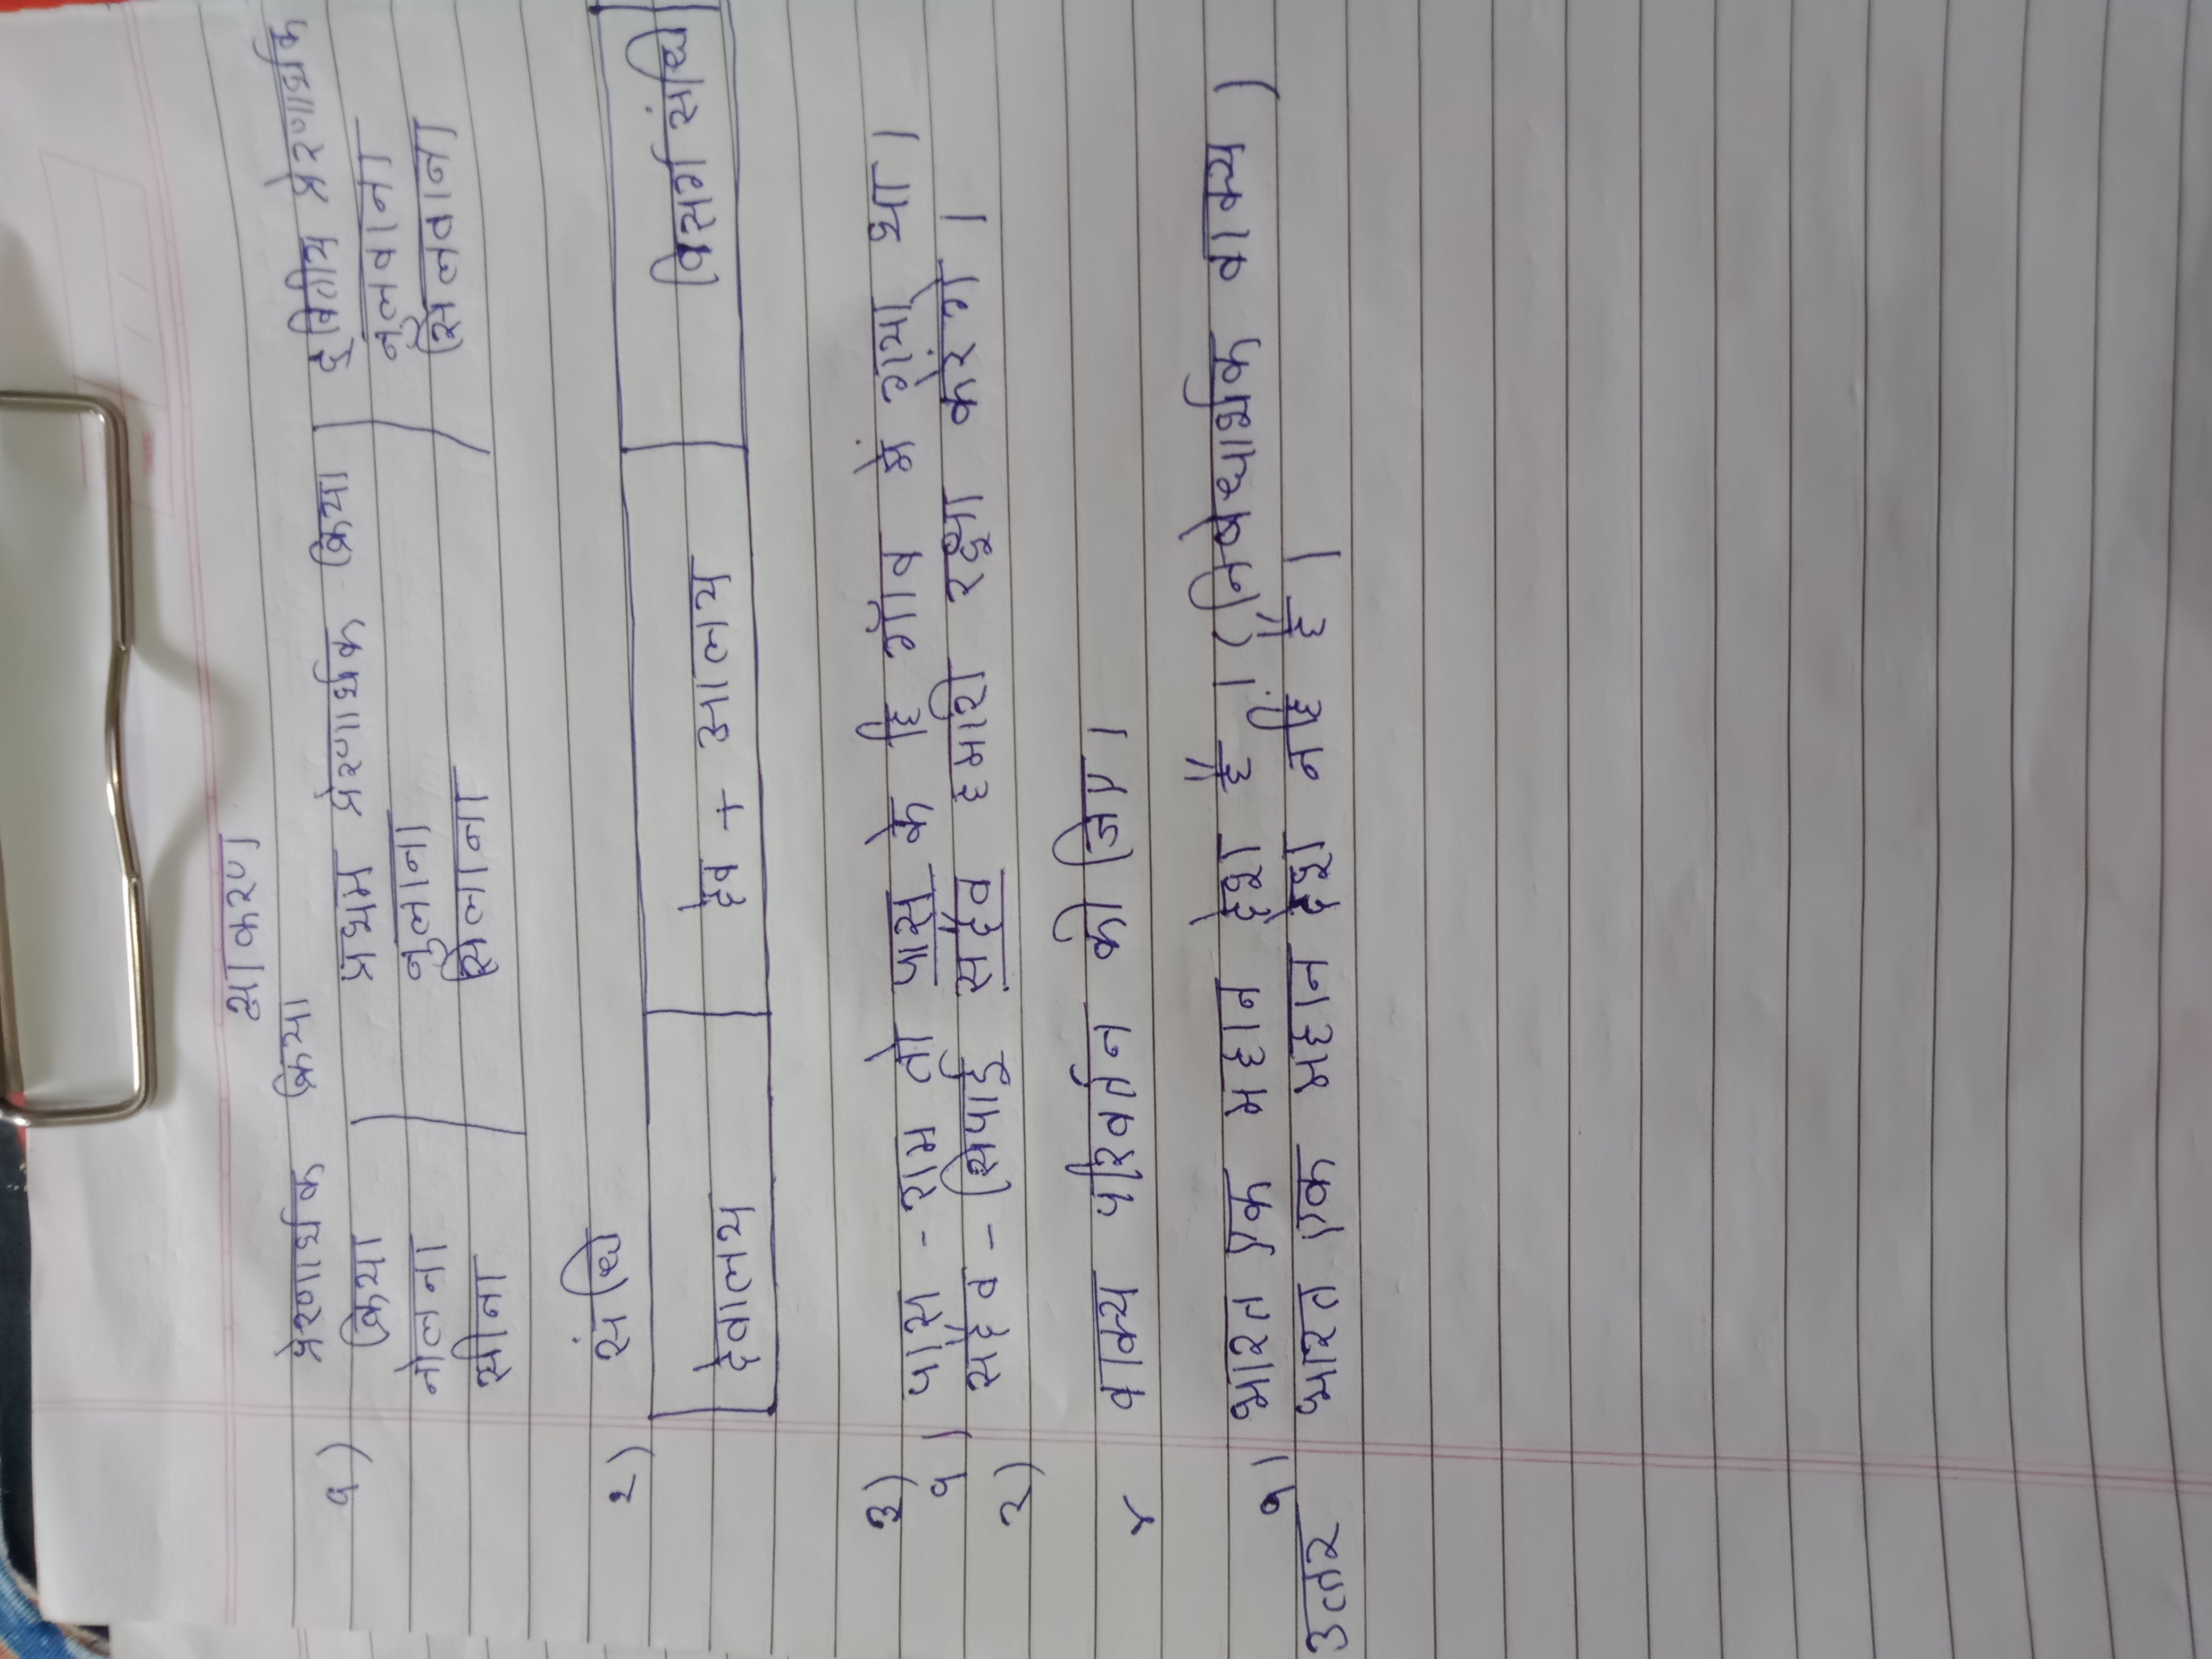 व्याकरण
प्रेरणार्थक क्रिया
१) क्रिया | प्रथम प्रेरणार्थक क्रिया | द्वितीय प्रेरणार्थक
बोलना बुलाना बुलवाना
सीना सिलाना सिलवाना
२) संधि
देवालय | देव + आलय | विसर्ग संधि
३)
१। पास - राम तो पास के हि गाँव में गया था।
२) सदैव - सिपाई सदैव हमारि रक्षा करेंगे।
४ वाक्य परिवर्तन की जिए।
१। भारत एक महान देश है। (निषेधार्थक वाक्य)
उत्तर भारत एक महान देश नहिं है।